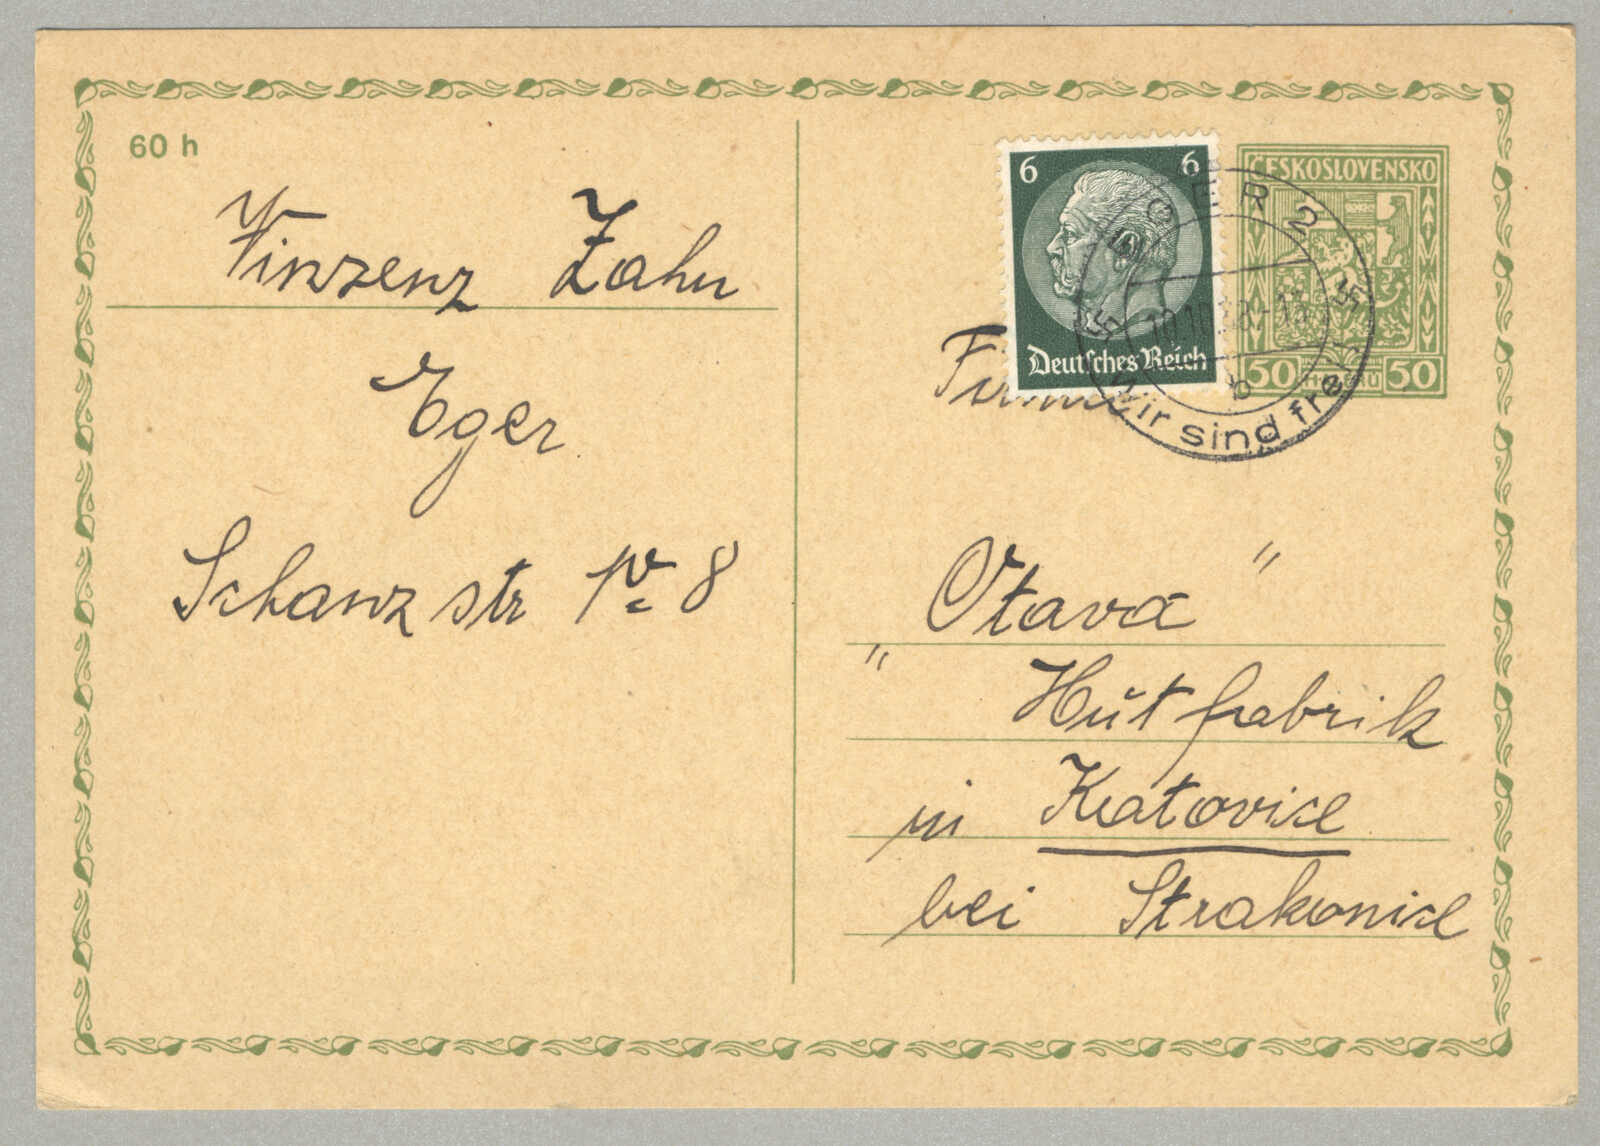 60 h
Vinzenz Zahn
Eger
Schanzstr No 8
6 6
Deutsches Reich
ČESKOSLOVENSKO
50 HALÉŘŮ 50
EGER 2
10.10.38-13
b
Wir sind frei!
Firma
"Otava"
Hutfabrik
in Katovice
bei Strakonice